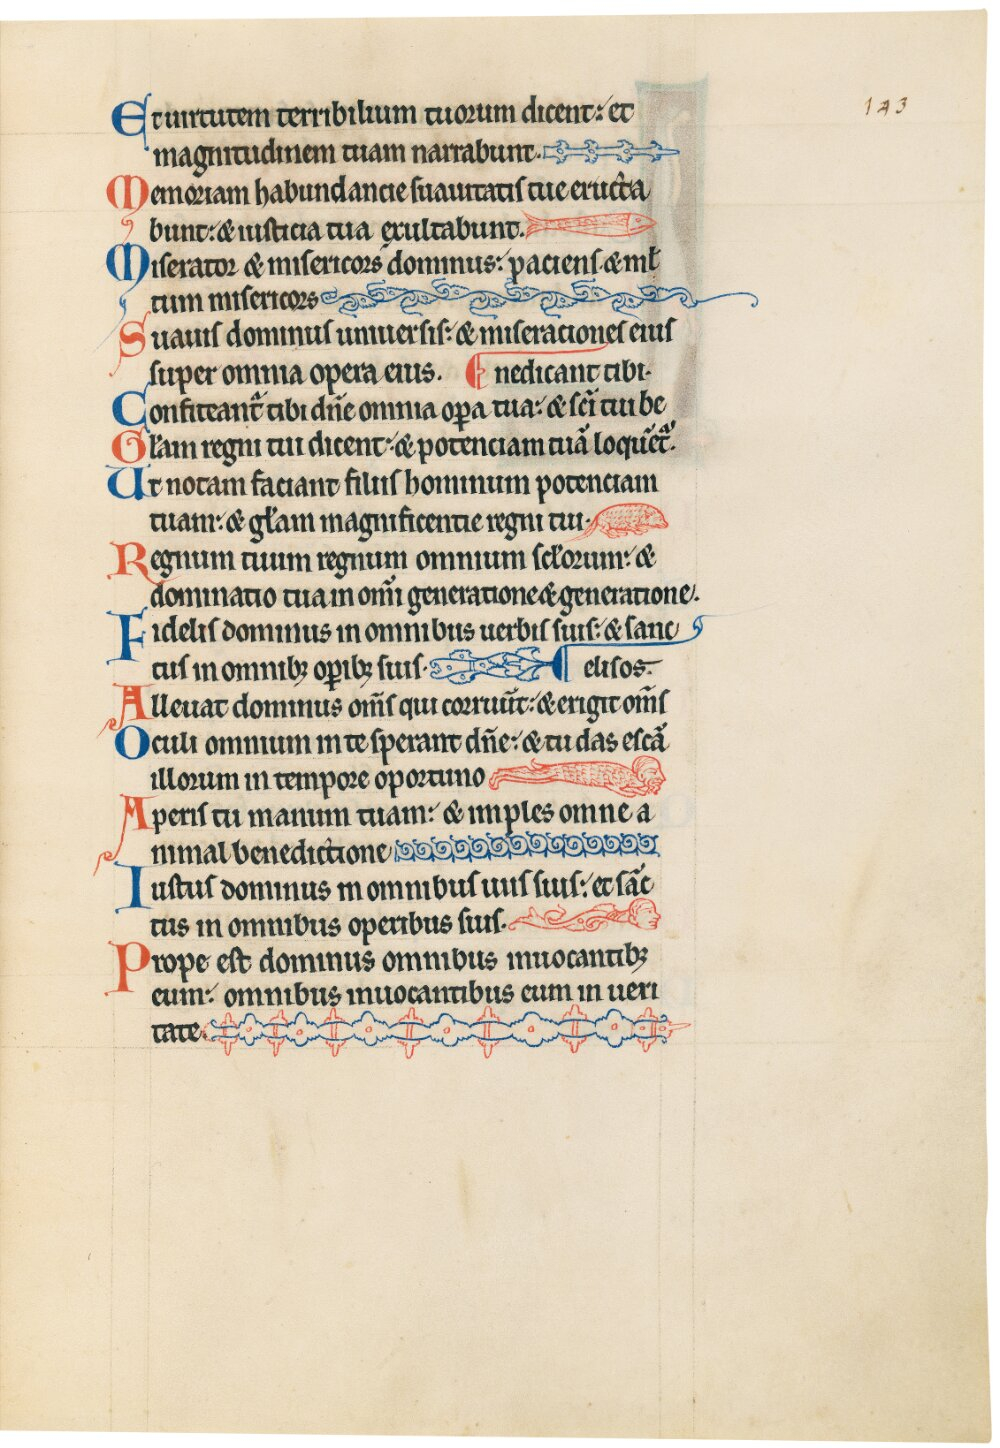 143
Et uirtutem terribilium tuorum dicent: et
magnitudinem tuam narrabunt.
Memoriam habundancie suauitatis tue eructa
bunt: & iusticia tua exultabunt.
Miserator & misericors dominus: paciens & ml̃
tum misericors
Suauis dominus uniuersis: & miseraciones eius
super omnia opera eius. nedicant tibi.
Confiteant᷑ tibi dñe omnia oꝑa tua: & sc̃i tui be
Gl̃am regni tui dicent: & potenciam tuã loquẽt᷑.
Ut notam faciant filiis hominum potenciam
tuam: & gl̃am magnificentie regni tui.
Regnum tuum regnum omnium scl̃orum: &
dominatio tua in om̃i generatione & generatione.
Fidelis dominus in omnibus uerbis suis: & sanc
tus in omnibꝫ oꝑibꝫ suis. elisos.
Alleuat dominus om̃s qui corruũt: & erigit om̃s
Oculi omnium in te sperant dñe: & tu das escã
illorum in tempore oportuno
Aperis tu manum tuam: & imples omne a
nimal benedictione
Iustus dominus in omnibus uiis suis: et sãc
tus in omnibus operibus suis.
Prope est dominus omnibus inuocantibꝫ
eum: omnibus inuocantibus eum in ueri
tate.